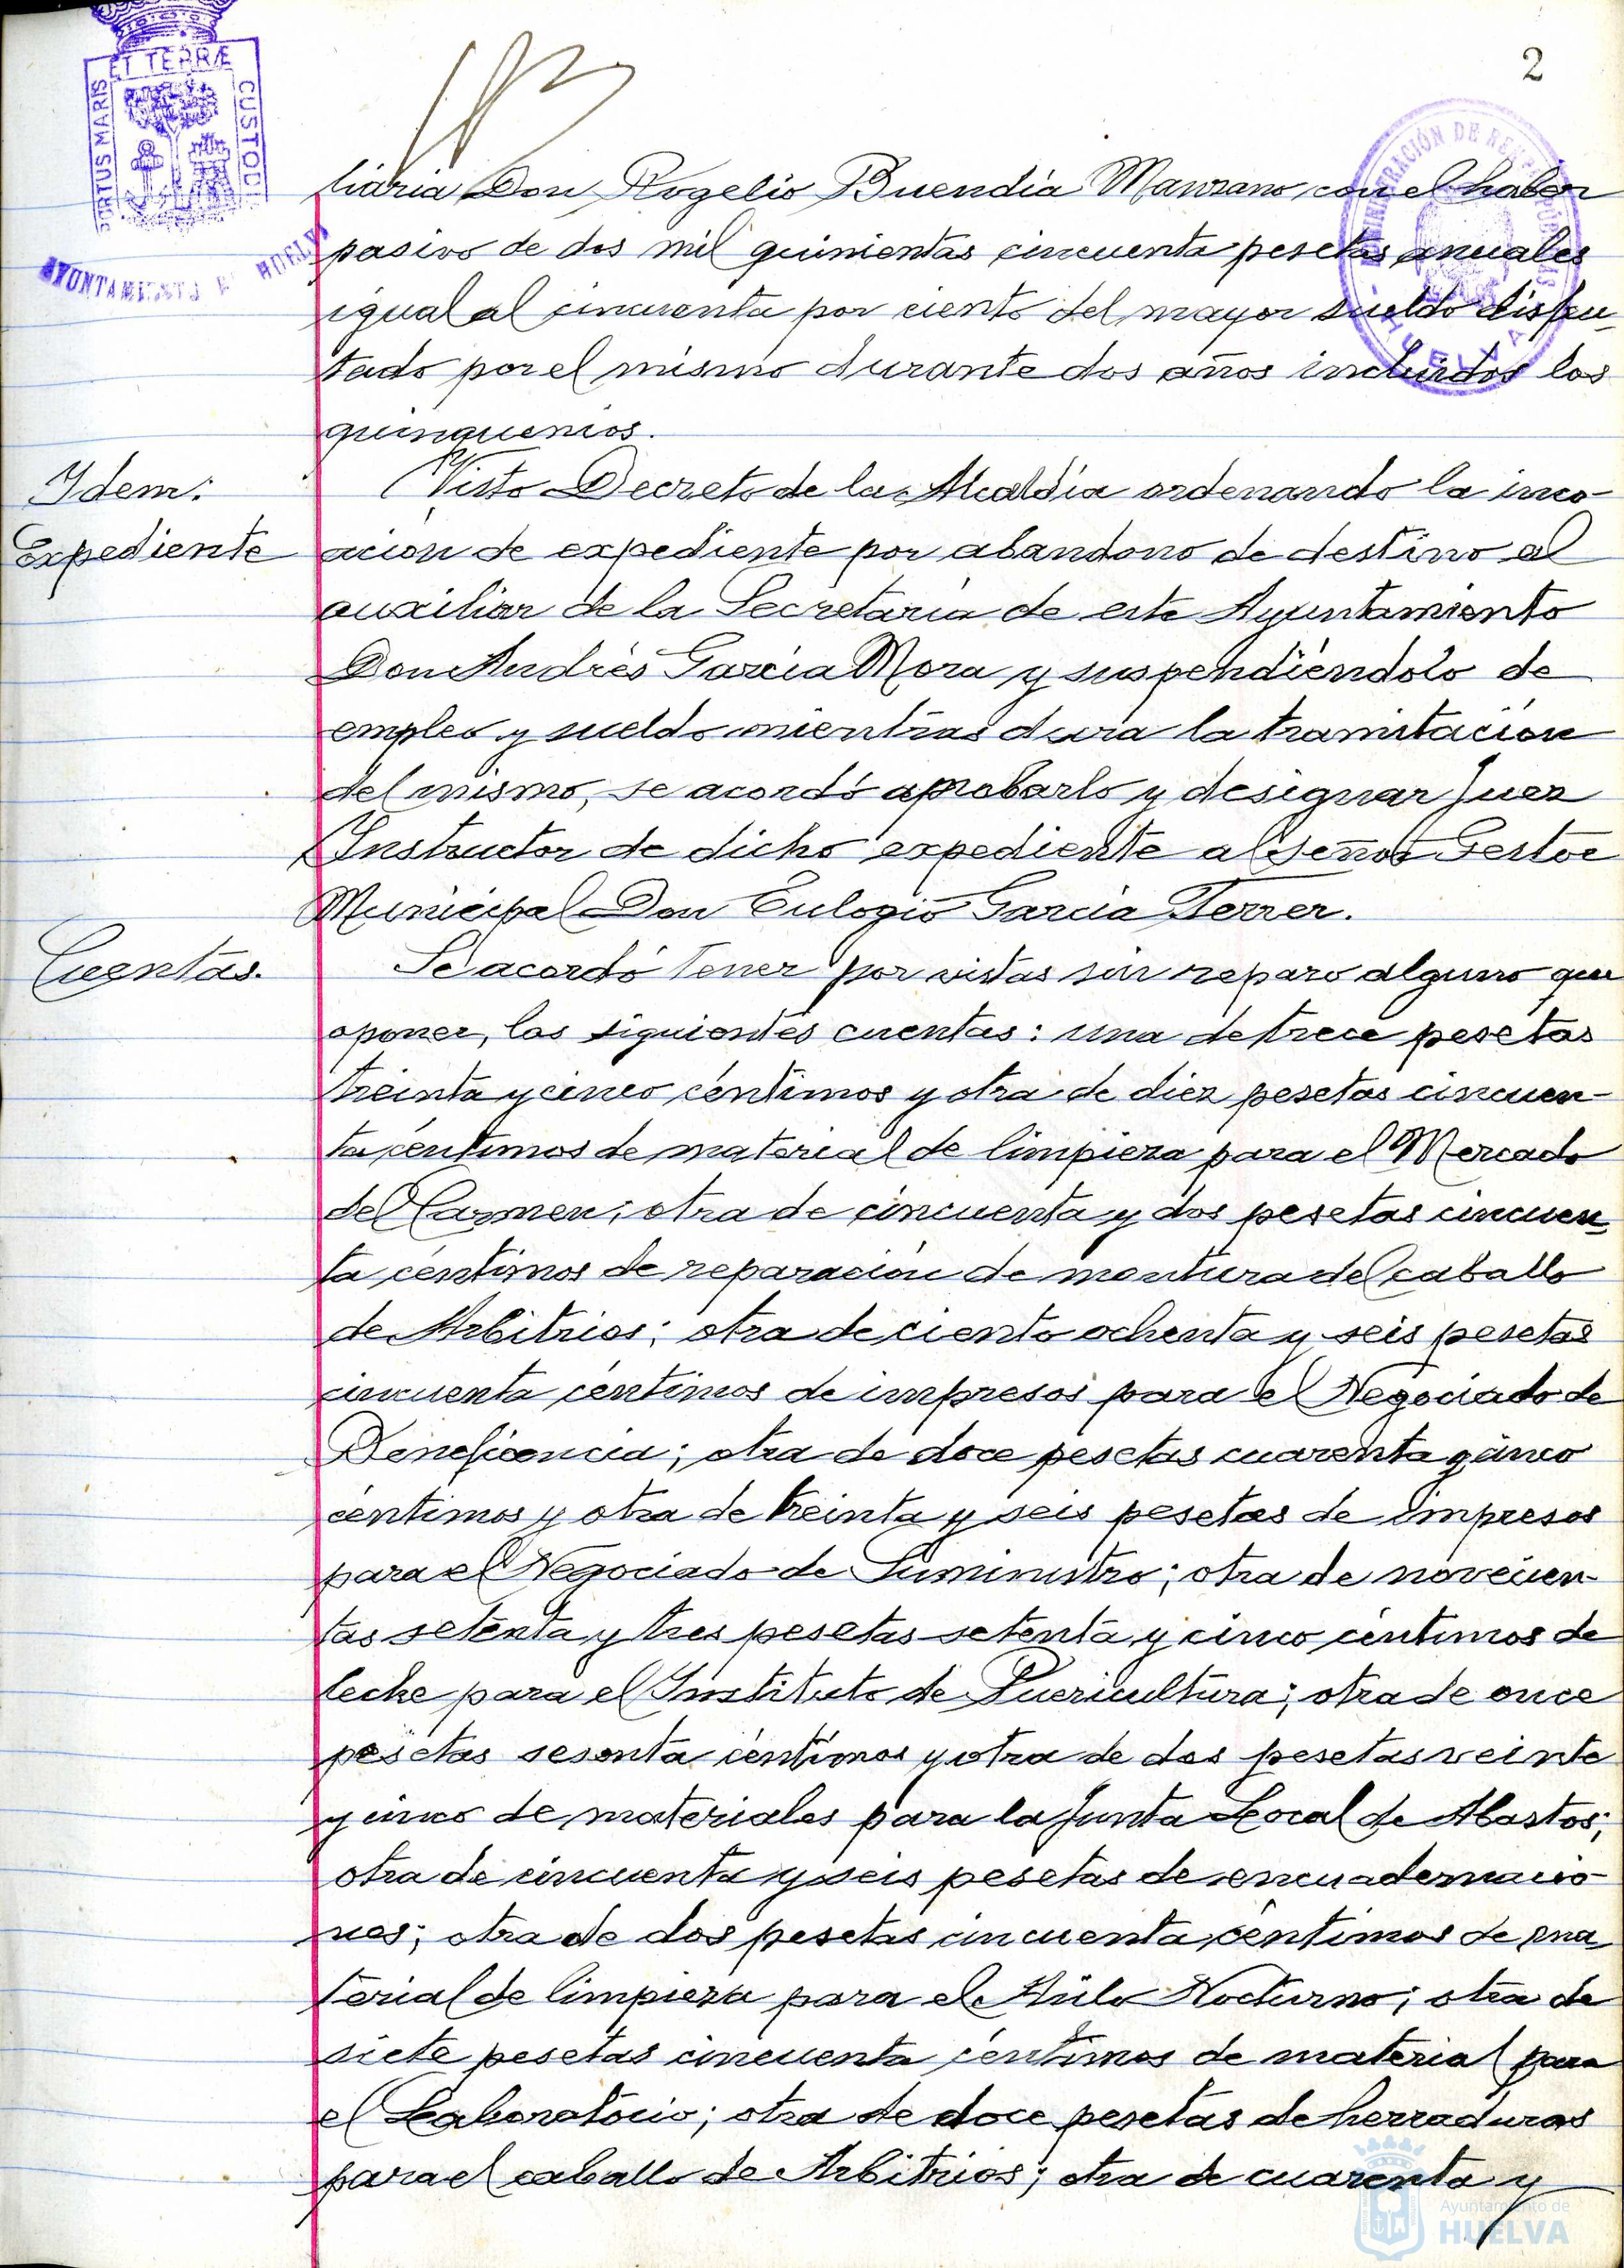 2
ET TERRÆ
PORTUS MARIS
CUSTODI
AYUNTAMIENTO DE HUELVA
ADMINISTRACIÓN DE
HUELVA
liaria Don Rogelio Buendía Manzano, con el haber
pasivo de dos mil quinientas cincuenta pesetas anuales
igual al cincuenta por ciento del mayor sueldo disfru-
tado por el mismo durante dos años incluidos los
quinquenios.
Idem:
Visto Decreto de la Alcaldía ordenando la inco-
Expediente
ación de expediente por abandono de destino al
auxiliar de la Secretaría de este Ayuntamiento
Don Andrés García Mora y suspendiéndolo de
empleo y sueldo mientras dura la tramitación
del mismo, se acordó aprobarlo y designar Juez
Instructor de dicho expediente al Señor Gestor
Municipal Don Eulogio García Ferrer.
Cuentas.
Se acordó tener por vistas sin reparo alguno que
oponer, las siguientes cuentas: una de trece pesetas
treinta y cinco céntimos y otra de diez pesetas cincuen-
ta céntimos de material de limpieza para el Mercado
del Carmen; otra de cincuenta y dos pesetas cincuen-
ta céntimos de reparación de montura del caballo
de Arbitrios; otra de ciento ochenta y seis pesetas
cincuenta céntimos de impresos para el Negociado de
Beneficencia; otra de doce pesetas cuarenta y cinco
céntimos y otra de treinta y seis pesetas de impresos
para el Negociado de Suministro; otra de novecien-
tas setenta y tres pesetas setenta y cinco céntimos de
leche para el Instituto de Puericultura; otra de once
pesetas sesenta céntimos y otra de dos pesetas veinte
y cinco de materiales para la Junta Local de Abastos;
otra de cincuenta y seis pesetas de encuadernacio-
nes; otra de dos pesetas cincuenta céntimos de ma
terial de limpieza para el Asilo Nocturno; otra de
siete pesetas cincuenta céntimos de material para
el Laboratorio; otra de doce pesetas de herraduras
para el caballo de Arbitrios; otra de cuarenta y
Ayuntamiento de
HUELVA